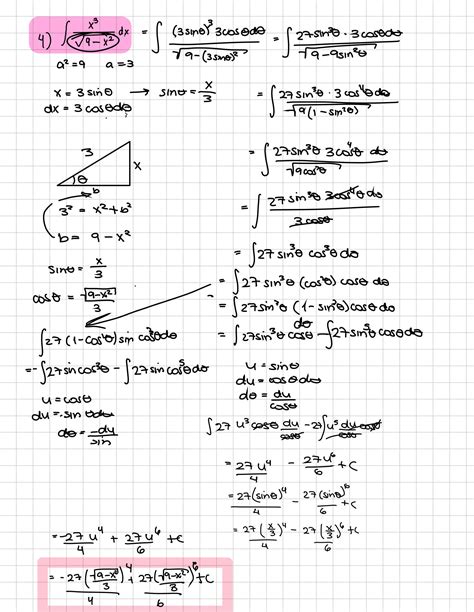 4) ∫ x³/√(9-x²) dx = ∫ (3sinθ)³ 3cosθdθ / √(9-(3sinθ)²) = ∫ 27sin³θ · 3cosθdθ / √(9-9sin²θ)
a²=9 a=3
x = 3 sinθ → sinθ = x/3
dx = 3 cosθdθ
= ∫ 27sin³θ · 3cos⁴θdθ / √(9(1-sin²θ))
3 x θ b
= ∫ 27sin³θ 3cos⁴θ dθ / √(9cos²θ)
3² = x²+b²
= ∫ 27 sin³θ 3cos⁴θdθ / 3cosθ
b = 9-x²
= ∫27 sin³θ cos³θdθ
sinθ = x/3
= ∫27 sin³θ (cos²θ) cosθ dθ
cosθ = √(9-x²)/3
= ∫27sin³θ (1-sin²θ)cosθ dθ
∫27(1-cos²θ) sin cos³θdθ
= ∫27sin³θ cosθ dθ - ∫27sin⁵θ cosθdθ
= -∫27sincos³θ - ∫27sincos⁵θdθ
u = sinθ
du = cosθdθ
dθ = du/cosθ
u = cosθ
du = -sinθdθ
dθ = -du/sin
∫27 u³ cosθ du/cosθ - 27∫u⁵ du cosθ/cosθ
= 27u⁴/4 - 27u⁶/6 + c
= 27(sinθ)⁴/4 - 27(sinθ)⁶/6 + c
= 27(x/3)⁴/4 - 27(x/3)⁶/6 + c
= -27u⁴/4 + 27u⁶/6 + c
= -27(√(9-x²)/3)⁴/4 + 27(√(9-x²)/3)⁶/6 + c